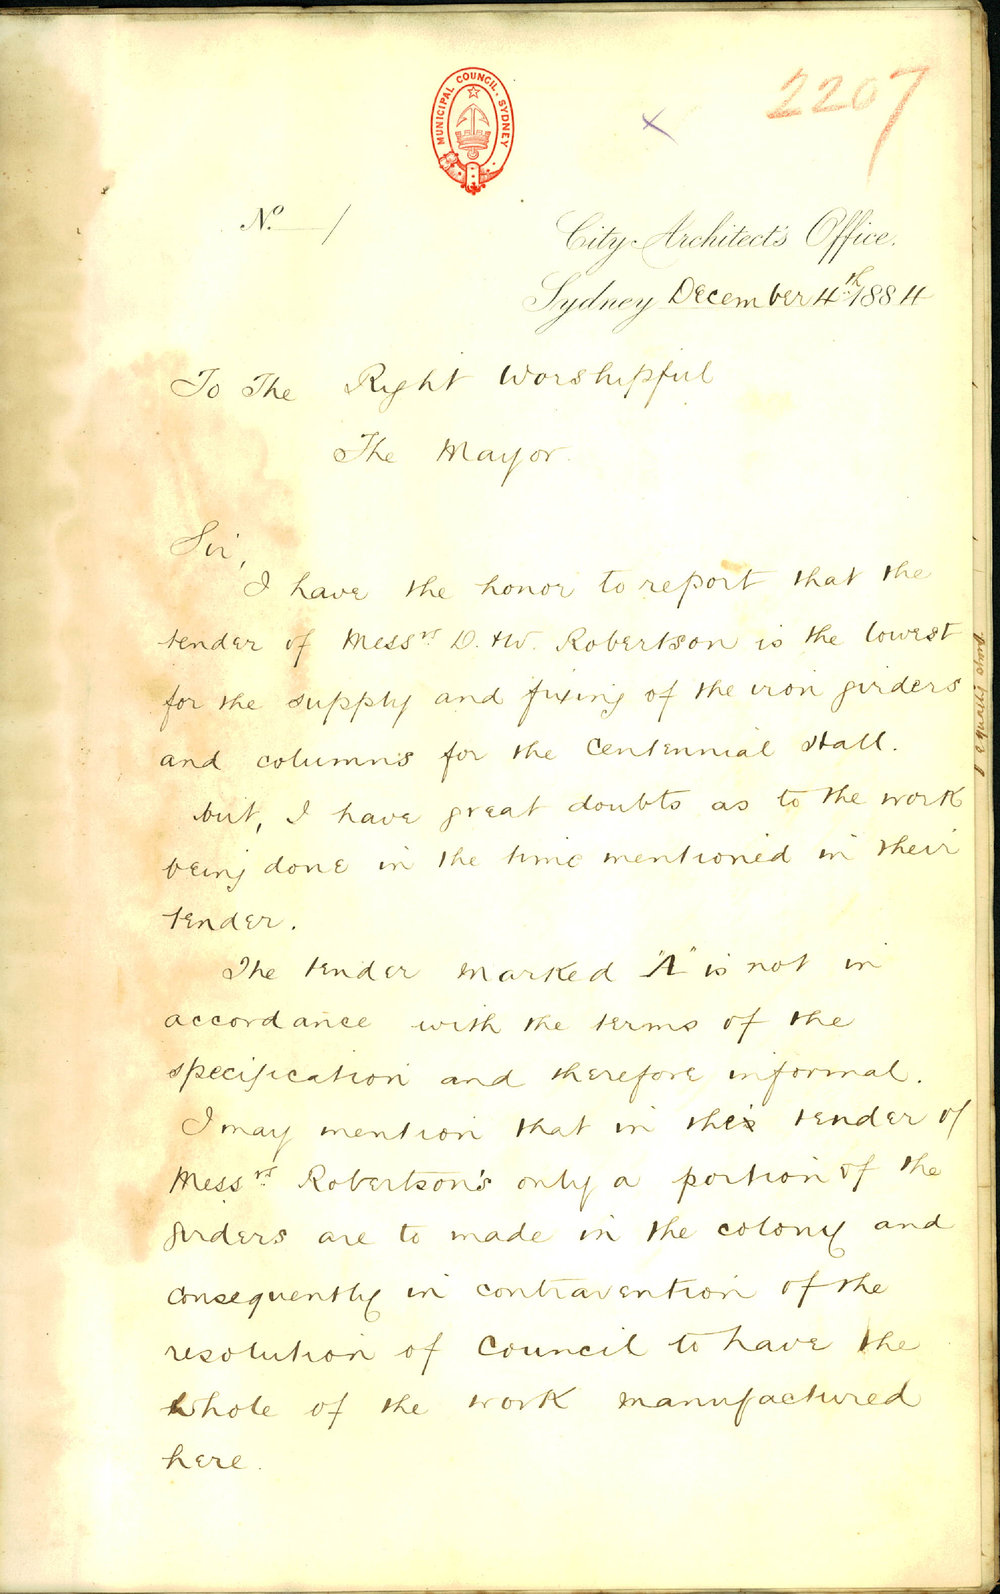 2207
MUNICIPAL COUNCIL. SYDNEY
No. /
City Architect's Office.
Sydney December 4th 1884
To The Right Worshipful
The Mayor.
Sir,
I have the honor to report that the
tender of Messrs D. & W. Robertson is the lowest
for the supply and fixing of the iron girders
and columns for the Centennial Hall.
but, I have great doubts as to the work
being done in the time mentioned in their
tender.
The tender marked "A" is not in
accordance with the terms of the
specification and therefore informal.
I may mention that in the tender of
Messrs Robertson's only a portion of the
girders are to made in the colony and
consequently in contravention of the
resolution of Council to have the
whole of the work manufactured
here.